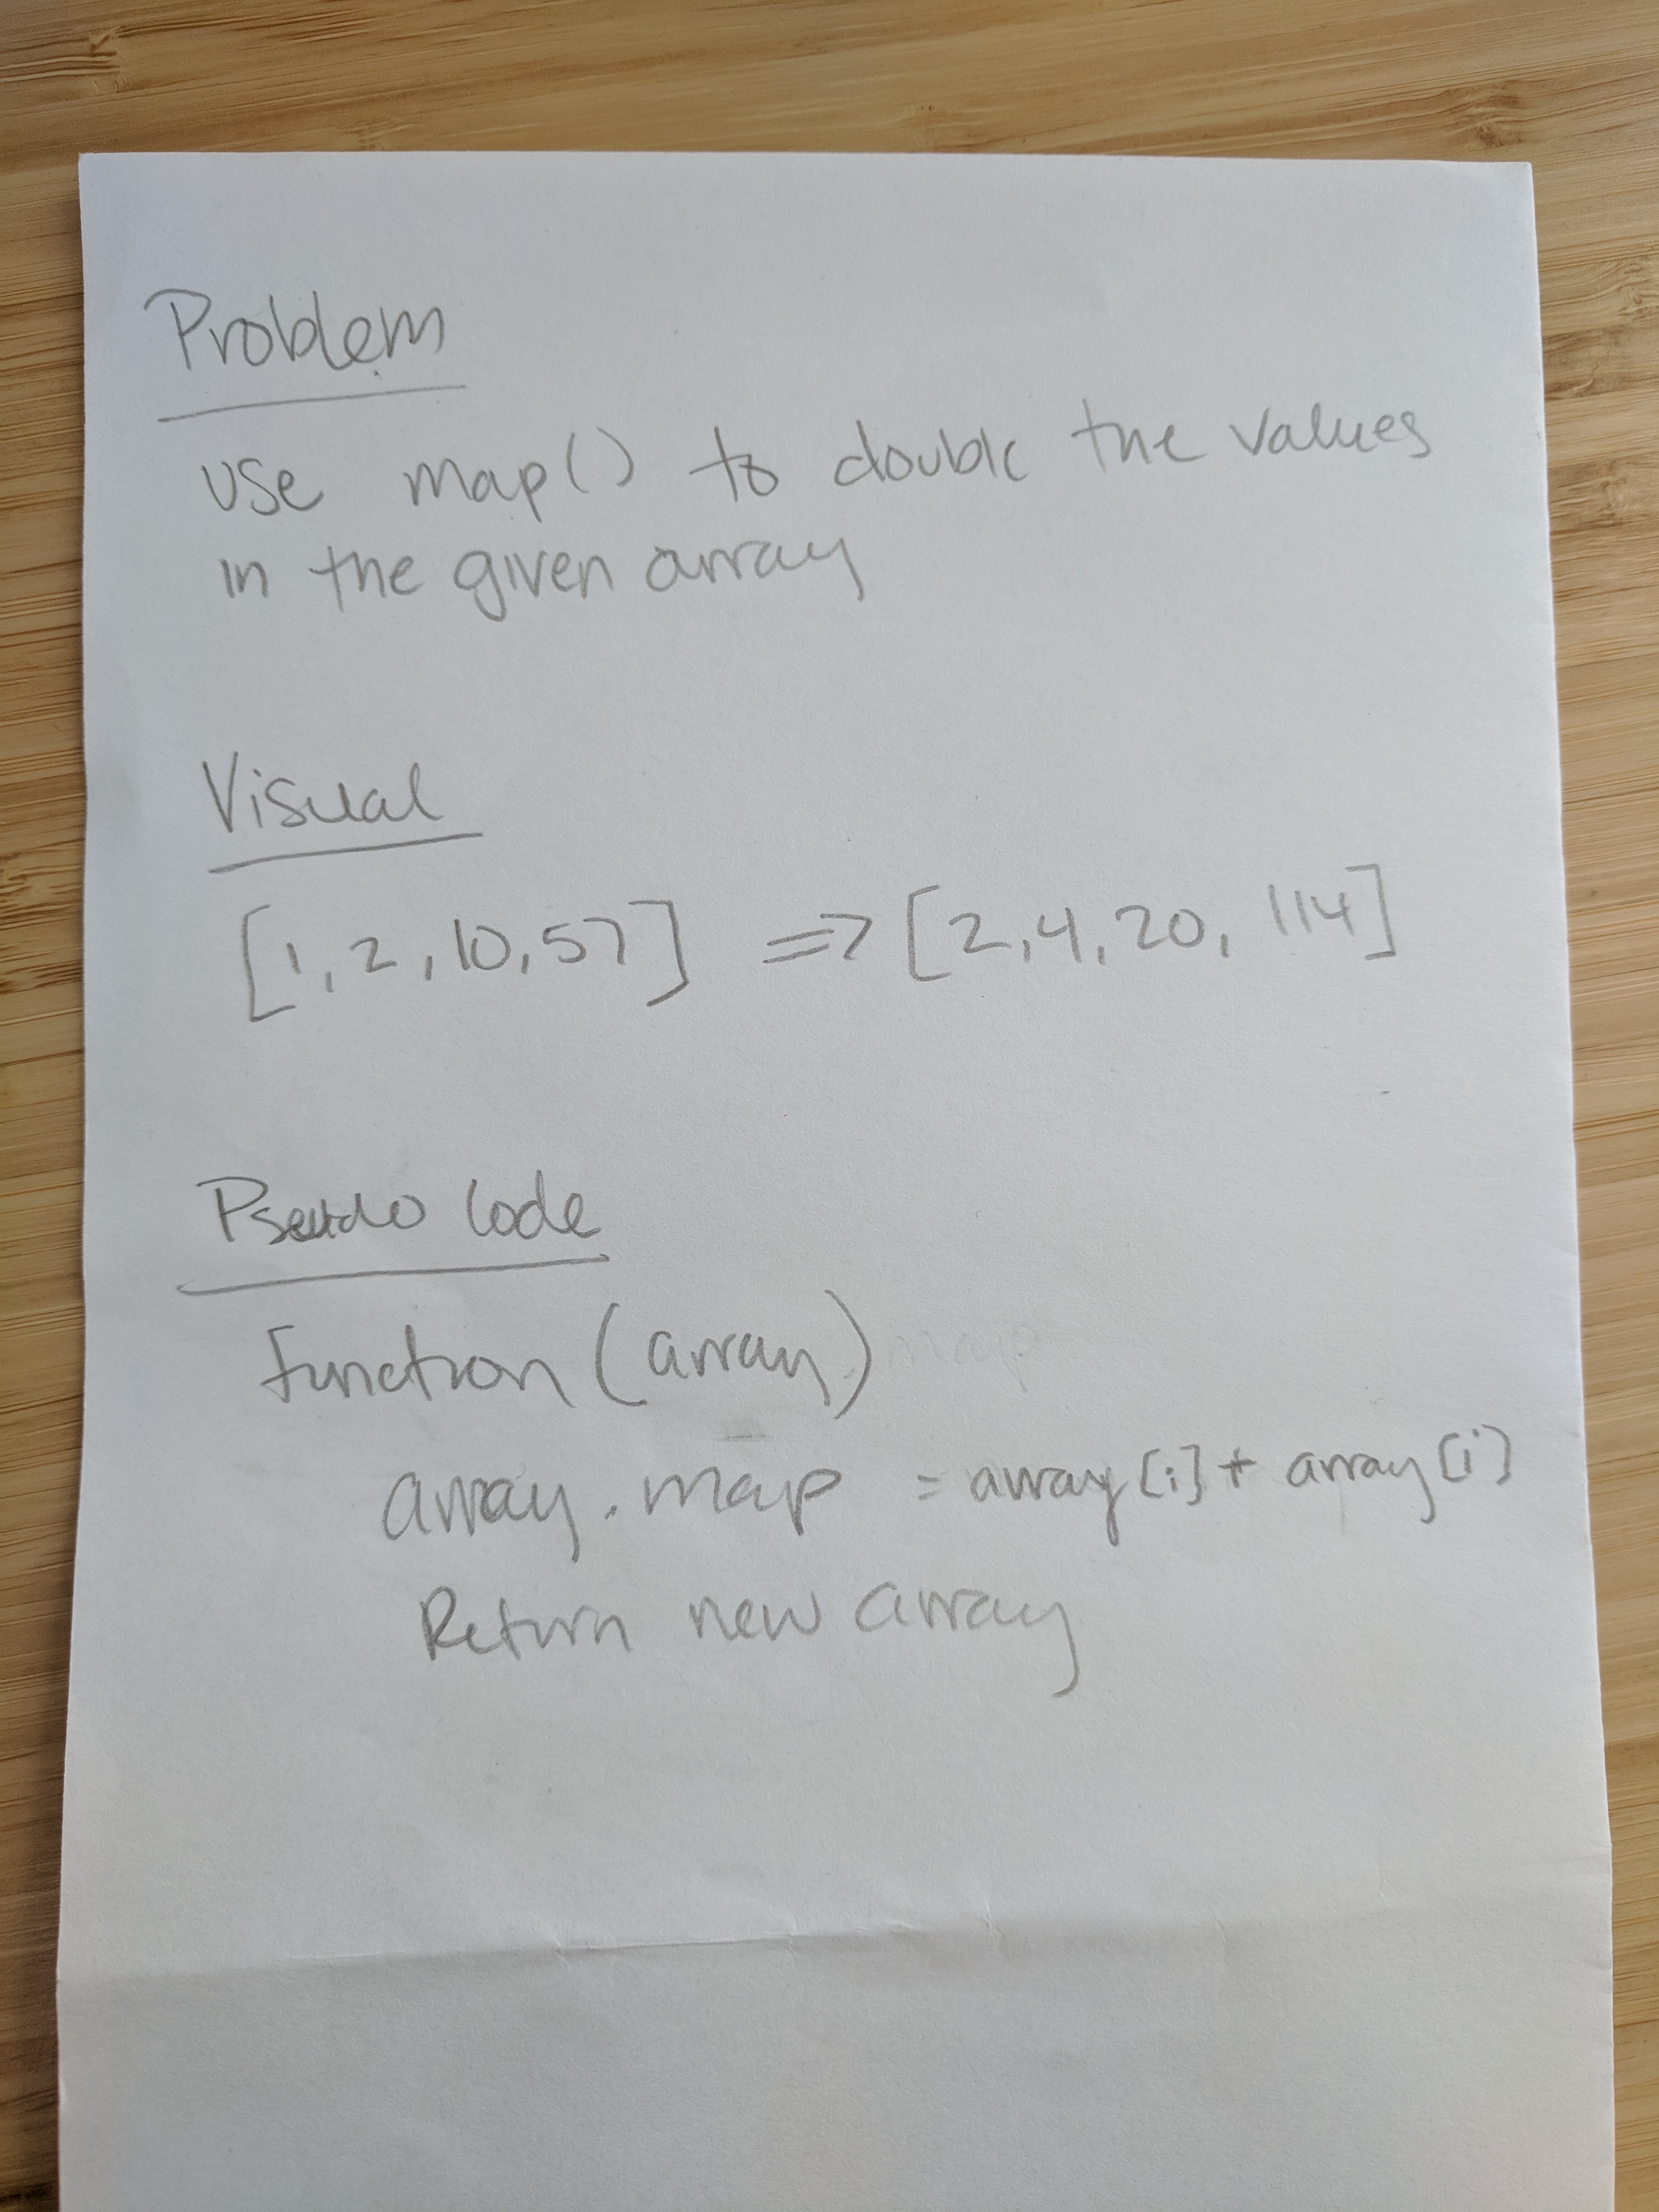 Problem
Use map() to double the values
in the given array
Visual
[1,2,10,57] => [2,4,20,114]
Pseudo Code
Function (array) map
array.map = array[i] + array[i]
Return new array